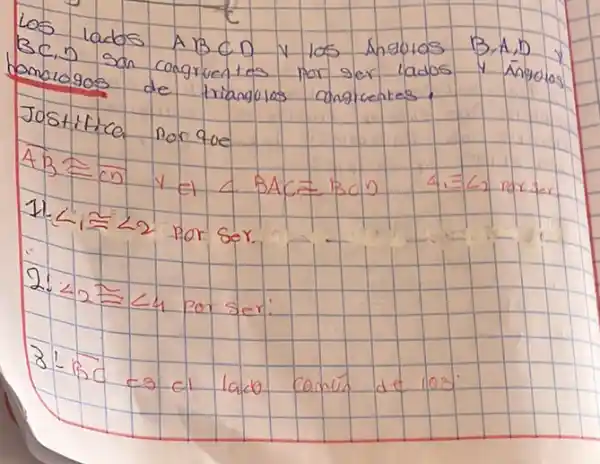 Los lados A B C D y los Ángulos B, A, D y
B C, D san congruentes por ser lados y Ángulos
homologos de triangulos congruentes.
Jostifica por qoe
AB ≅ CD y el ∠ BAC ≅ BCD ∠1 ≅ ∠2 por ser
1! ∠1 ≅ ∠2 por ser.
2! ∠2 ≅ ∠4 por ser:
3!- BC es el lado común de los: